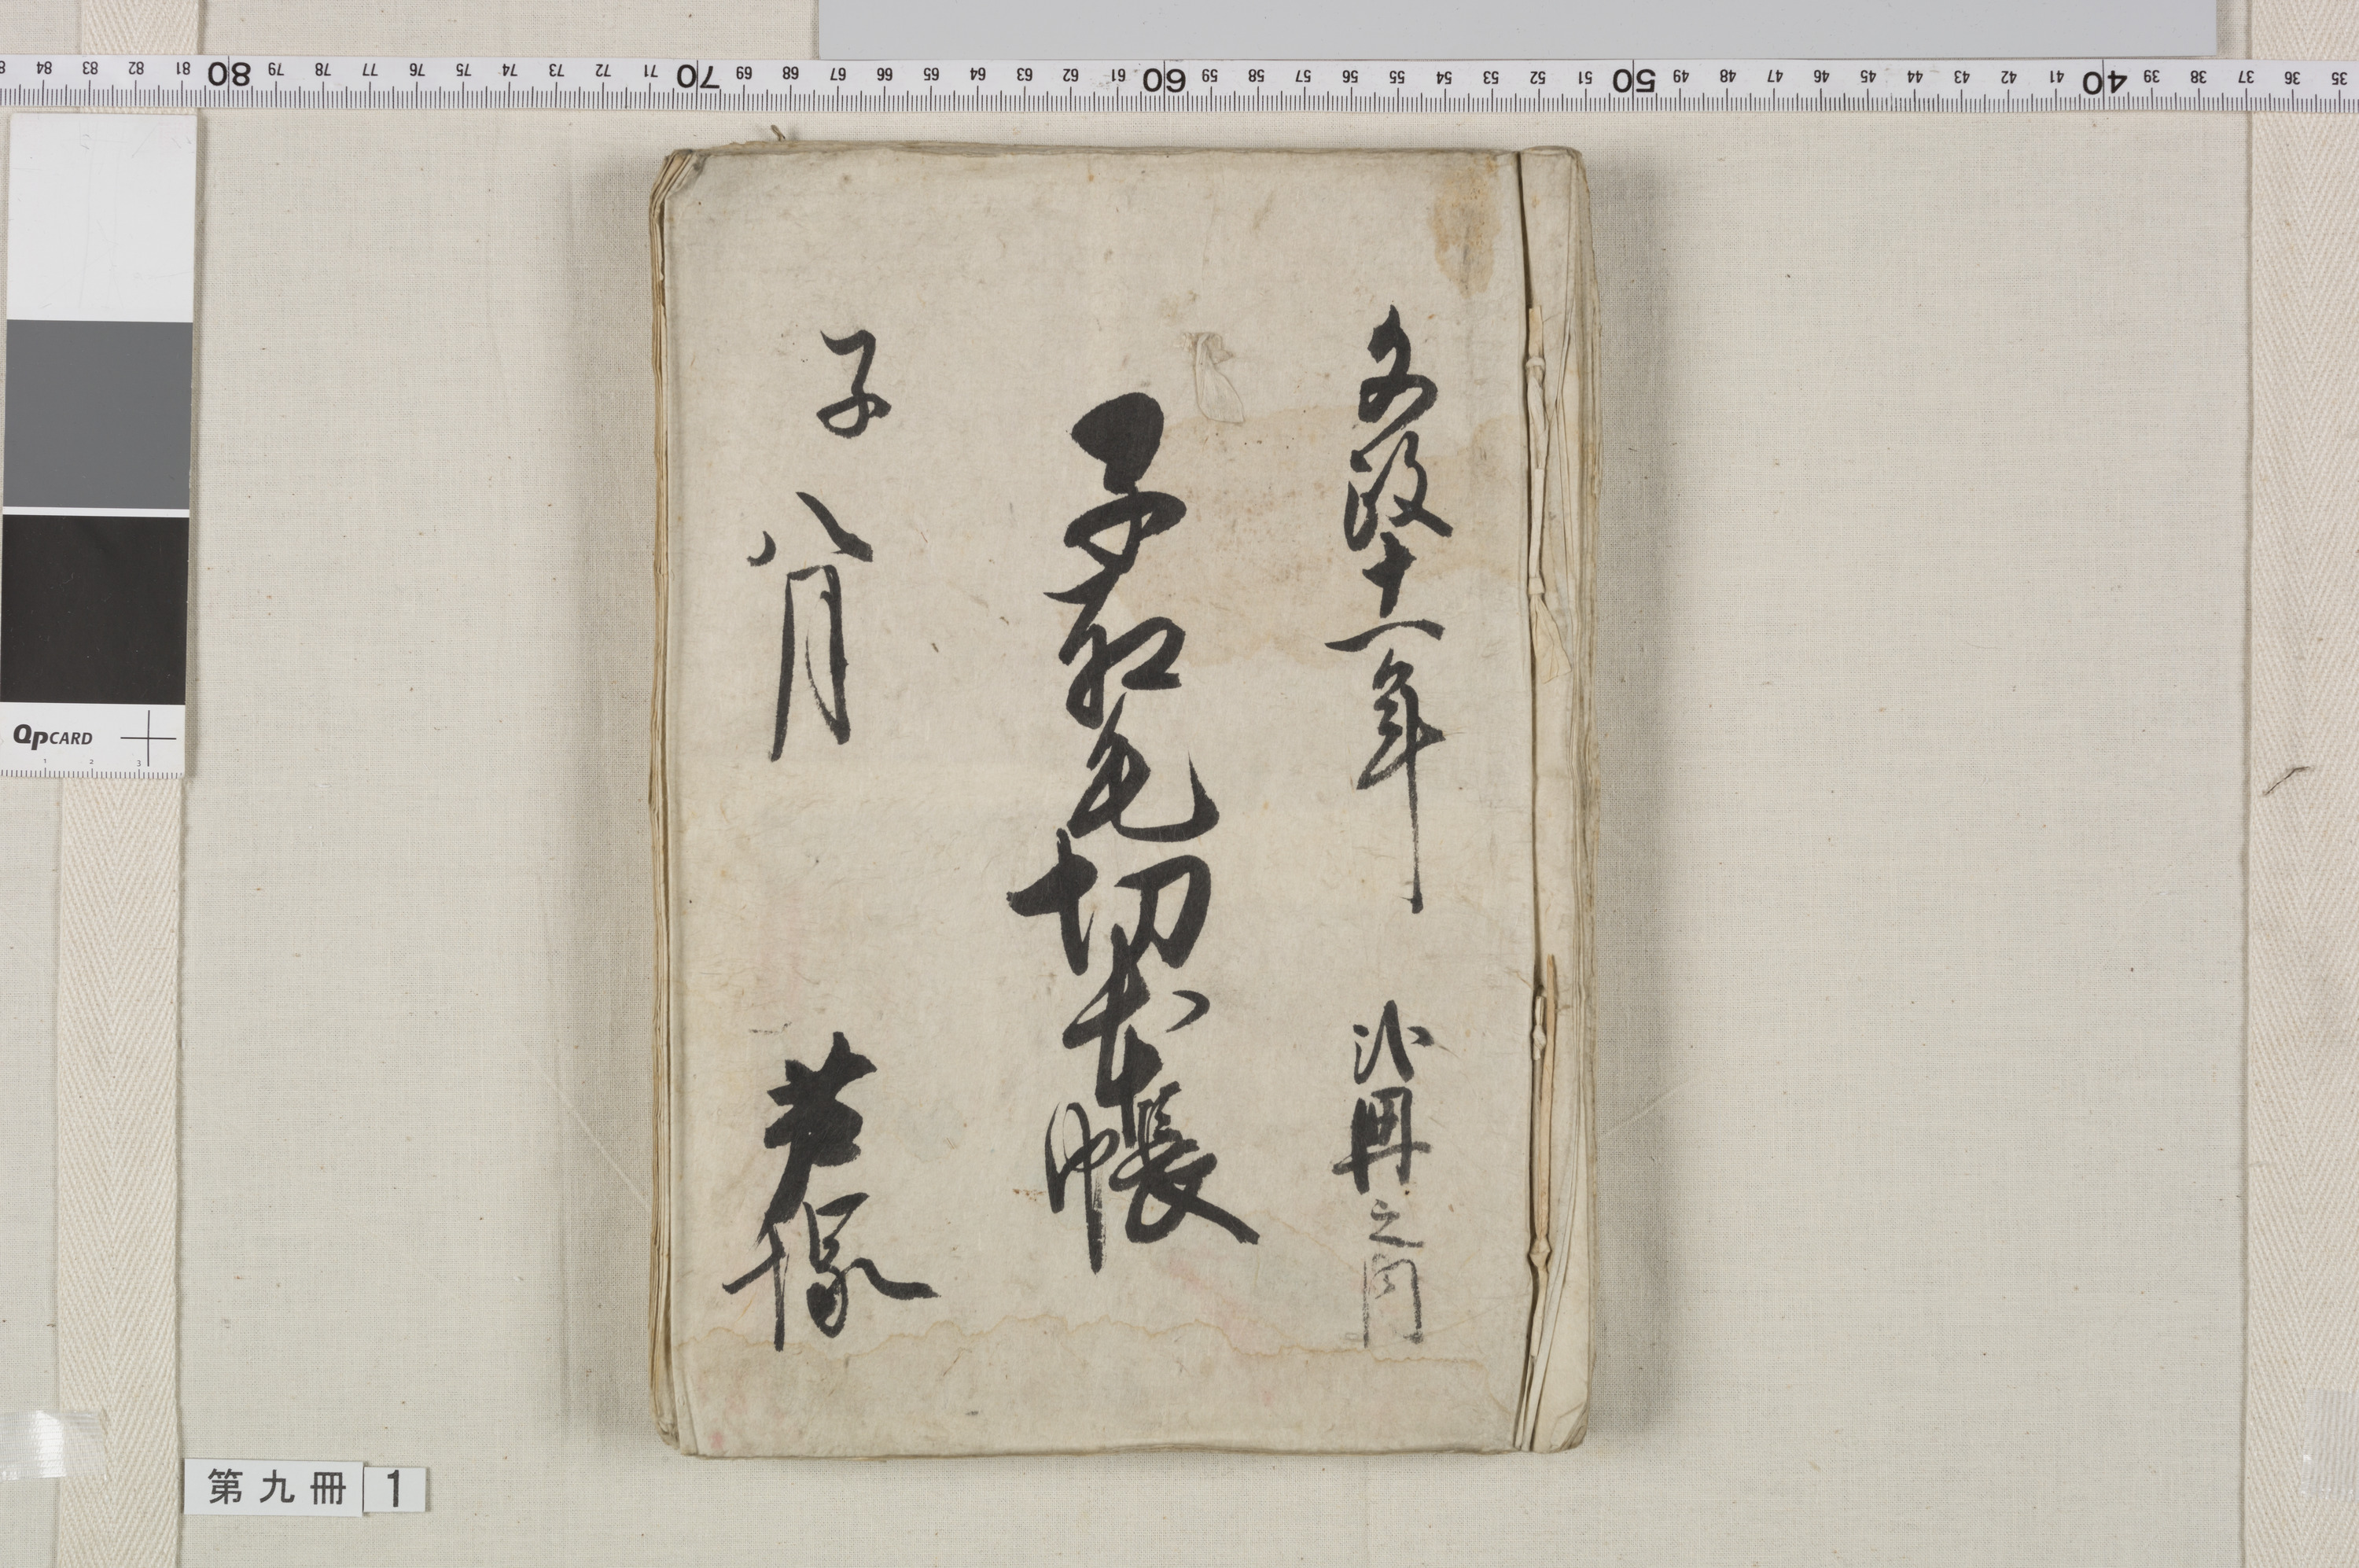 文政十一年
弐冊之内
子紅毛切本帳
子八月
芦塚
第九冊 1
QPCARD
84 83 82 81 80 79 78 77 76 75 74 73 72 71 70 69 68 67 66 65 64 63 62 61 60 59 58 57 56 55 54 53 52 51 50 49 48 47 46 45 44 43 42 41 40 39 38 37 36 35
1 2 3